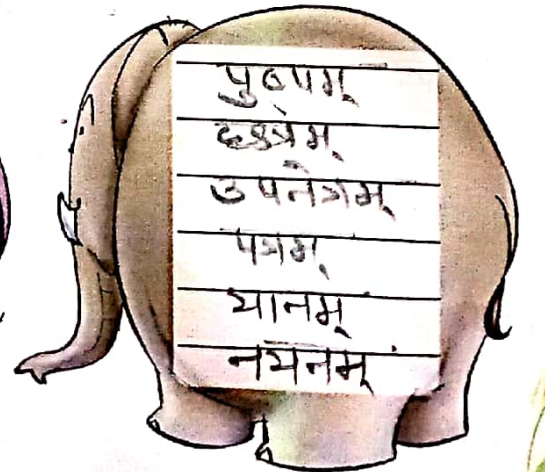 पुष्पम्
छत्रम्
उपनेत्रम्
पत्रम्
यानम्
नयनम्